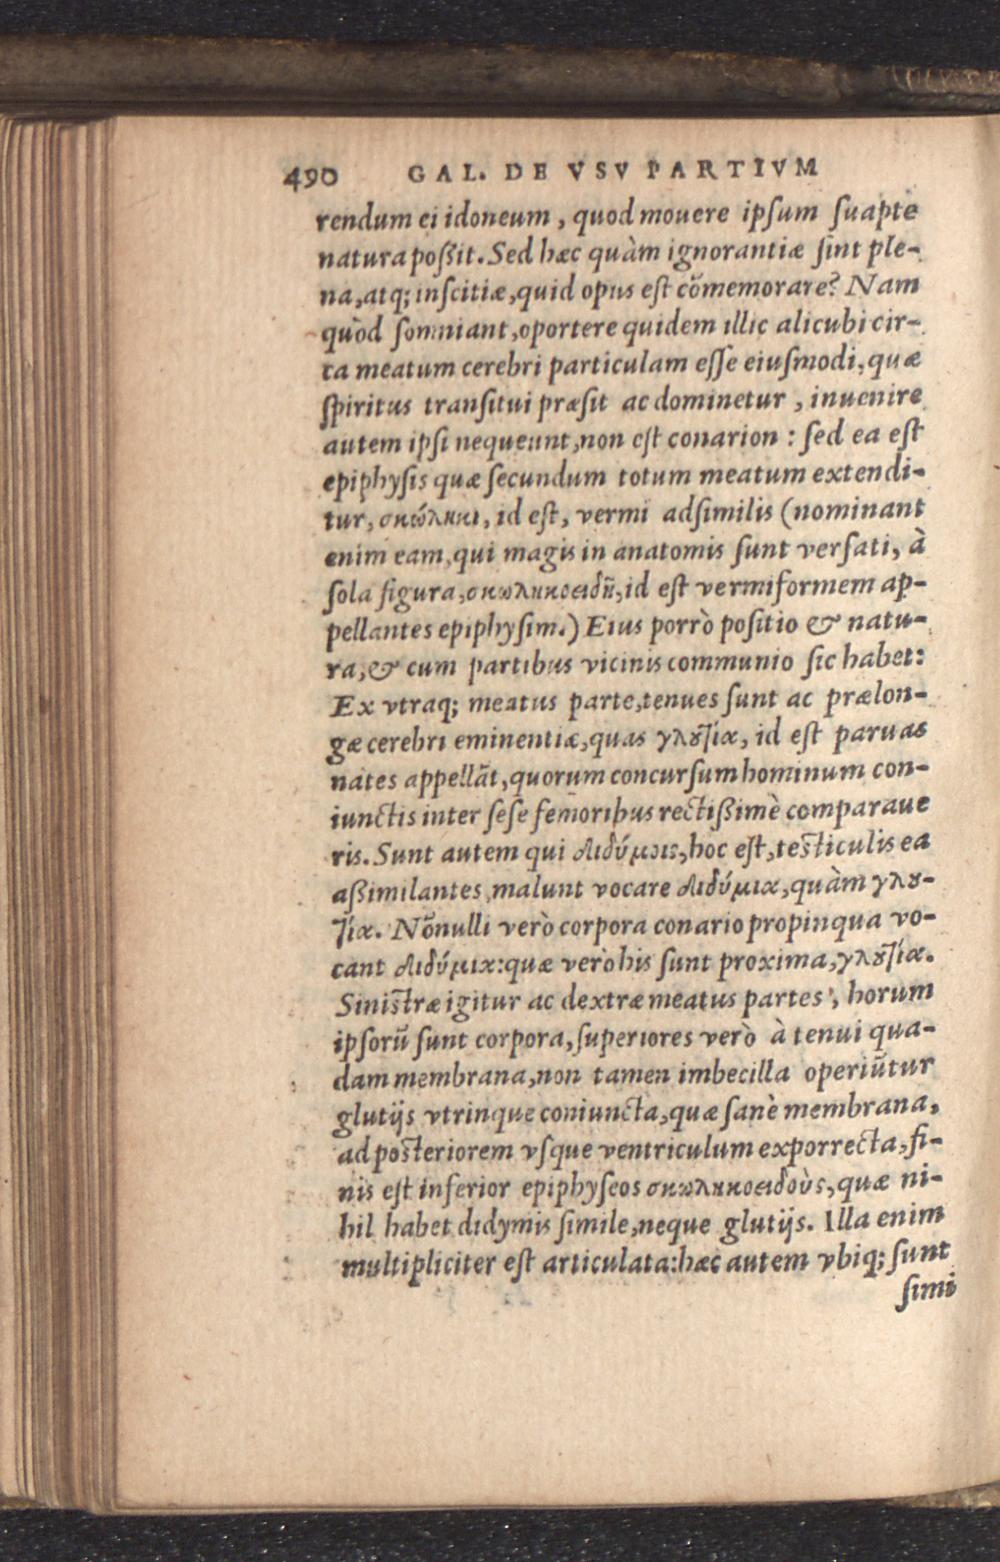 490 GAL. DE VSV PARTIVM
rendum ei idoneum, quod mouere ipſum ſuapte
natura poſsit. Sed hæc quàm ignorantiæ ſint ple-
na, atq; inſcitiæ, quid opus eſt cõmemorare? Nam
quòd ſomniant, oportere quidem illic alicubi cir-
ca meatum cerebri particulam eſſe eiuſmodi, quæ
ſpiritus tranſitui præſit ac dominetur, inuenire
autem ipſi nequeunt, non eſt conarion: ſed ea eſt
epiphyſis quæ ſecundum totum meatum extendi-
tur, σκώληκι, id eſt, vermi adſimilis (nominant
enim eam, qui magis in anatomis ſunt verſati, à
ſola figura, σκωληκοειδῆ, id eſt vermiformem ap-
pellantes epiphyſim.) Eius porrò poſitio & natu-
ra, & cum partibus vicinis communio ſic habet:
Ex vtraq; meatus parte, tenues ſunt ac prælon-
gæ cerebri eminentiæ, quas γλȣτία, id eſt paruas
nates appellãt, quorum concurſum hominum con-
iunctis inter ſeſe femoribus rectiſsimè comparaue
ris. Sunt autem qui διδύμοις, hoc eſt, teſticulis ea
aſsimilantes, malunt vocare διδύμια, quàm γλȣ-
τία. Nõnulli verò corpora conario propinqua vo-
cant διδύμια: quæ verò his ſunt proxima, γλȣτία.
Siniſtræ igitur ac dextræ meatus partes, horum
ipſorũ ſunt corpora, ſuperiores verò à tenui qua-
dam membrana, non tamen imbecilla operiũtur
glutijs vtrinque coniuncta, quæ ſanè membrana,
ad poſteriorem vſque ventriculum exporrecta, fi-
nis eſt inferior epiphyſeos σκωληκοειδοὺς, quæ ni-
hil habet didymis ſimile, neque glutijs. Illa enim
multipliciter eſt articulata: hæc autem vbiq; ſunt
ſimi